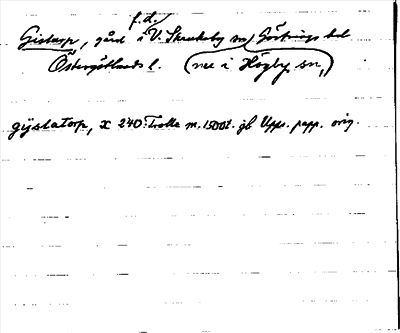 f.d.
Gistorp, gård i V. Skrukeby sn, Göstrings hd
Östergötlands l. (nu i Högby sn,)
gystatorp, X 240: Trolle m. 1500t. jb Upps. papp. orig.